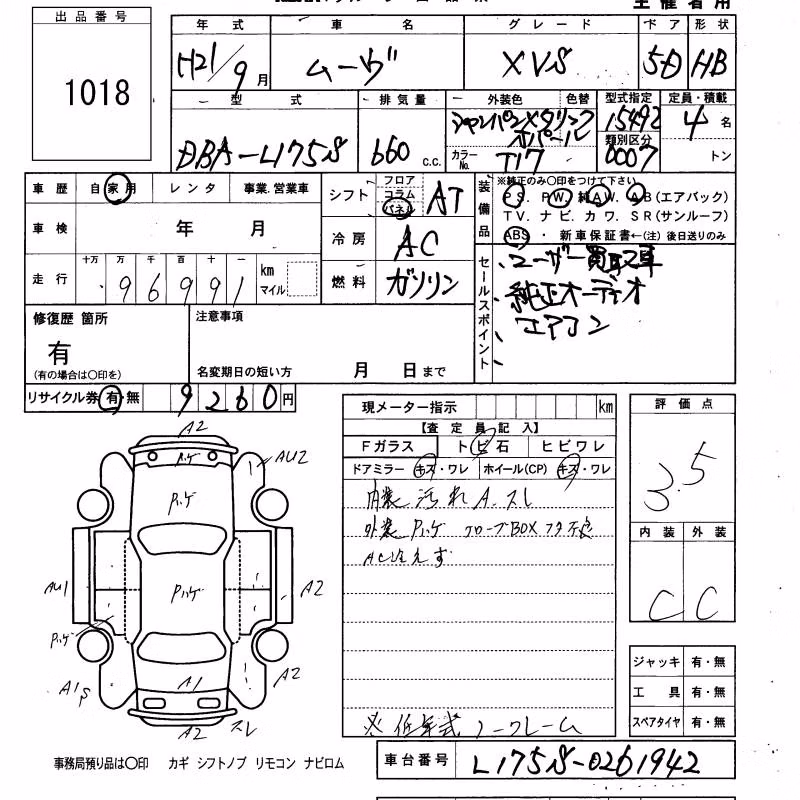 主催者用
出品番号
1018
年式 車名 グレード ドア 形状
H21/9月 ムーヴ XVS 5D HB
型式 排気量 外装色 色替 型式指定 定員・積載
DBA-L175S 660 c.c. シャンパンメタリックオパール 15492 4名
カラーNo. T17 類別区分 0007 トン
車歴 自家用 レンタ 事業.営業車
シフト フロア コラム パネル AT
装備品 ※純正のみ〇印をつけて下さい
PS. PW. 純AW. AB(エアバック)
TV. ナビ. カワ. SR(サンルーフ)
ABS ・ 新車保証書←(注) 後日送りのみ
車検 年 月
冷房 AC
走行 十万 万 千 百 十 一
96991 km マイル
燃料 ガソリン
セールスポイント
ユーザー買取車
純正オーディオ
エアコン
修復歴 箇所
有
(有の場合は〇印を)
注意事項
名変期日の短い方 月 日まで
リサイクル券 有・無 9260円
現メーター指示 km
【査定員記入】
Fガラス トビ石 ヒビワレ
ドアミラー キズ・ワレ ホイール(CP) キズ・ワレ
内装汚れ A.スレ
外装Pハゲ グローブBOXフタ不良
AC冷えず
※低年式ノークレーム
評価点
3.5
内装 外装
C C
ジャッキ 有・無
工具 有・無
スペアタイヤ 有・無
A2
Pハゲ
AU2
Pハゲ
AU1
Pハゲ
A2
Pハゲ
A1S
A1
A2
A2
スレ
事務局預り品は〇印 カギ シフトノブ リモコン ナビロム
車台番号 L175S-0261942